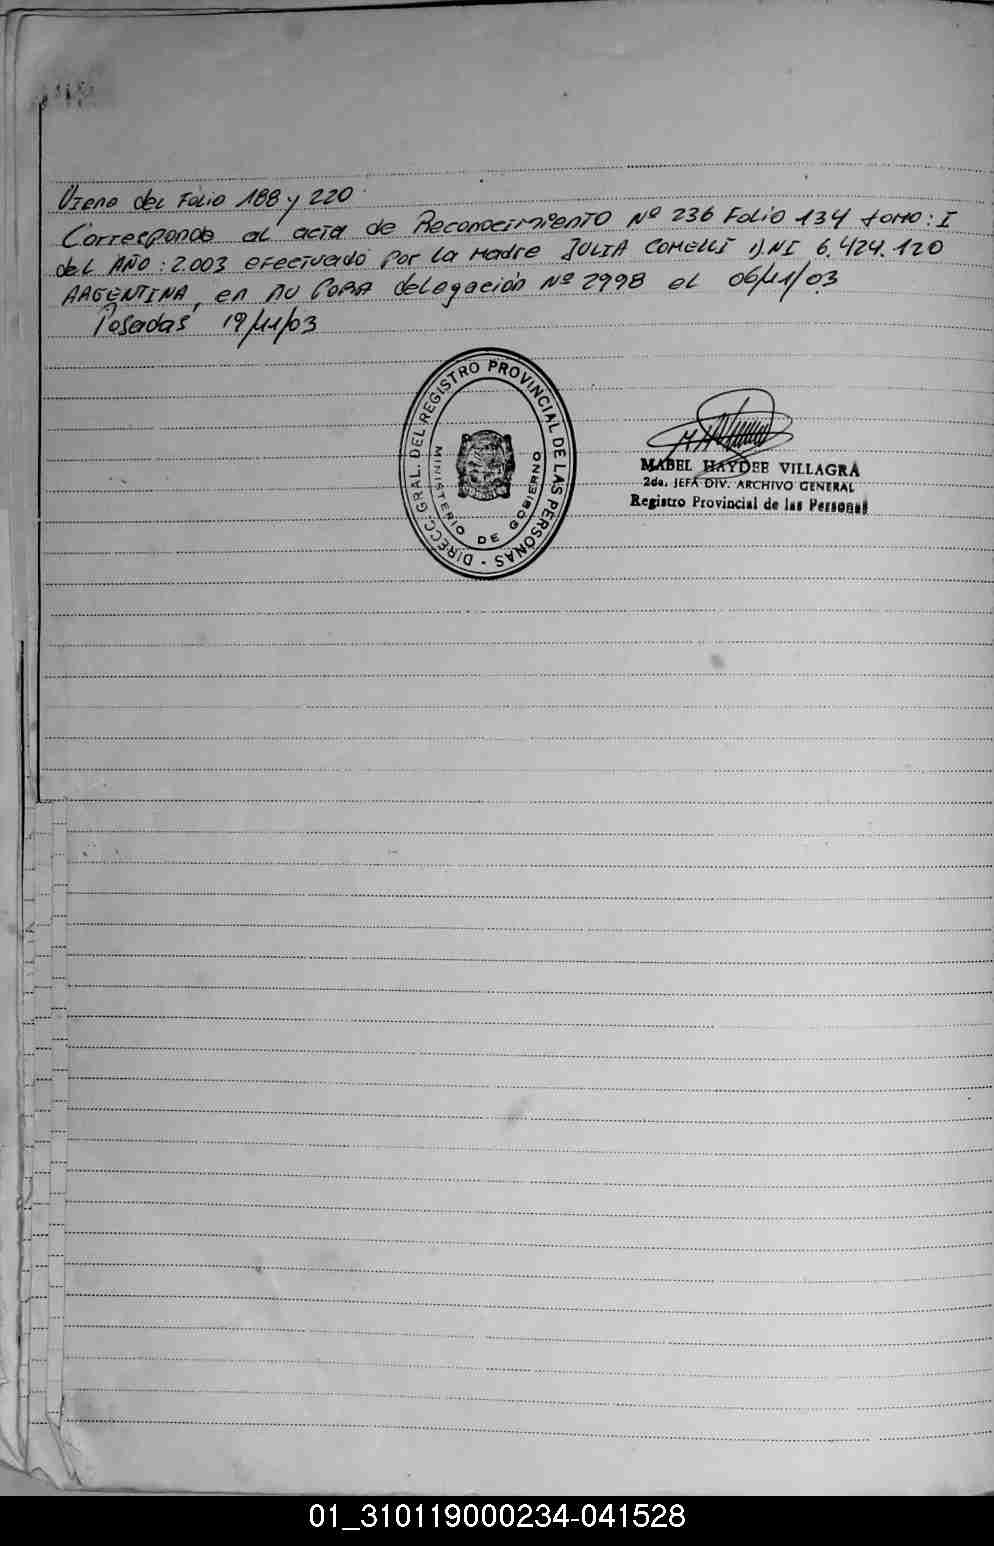 Viene del Folio 188 y 220
Corresponde al acta de Reconocimiento Nº 236 Folio 134 tomo: I
del AÑO: 2.003 efectuado por la Madre JULIA COMELLI DNI 6.424.120
ARGENTINA, en delegación Nº 2998 el 06/11/03
Posadas 19/11/03
DIRECC. GRAL. DEL REGISTRO PROVINCIAL DE LAS PERSONAS -
MINISTERIO DE GOBIERNO
MABEL HAYDEE VILLAGRA
2da. JEFA DIV. ARCHIVO GENERAL
Registro Provincial de las Personas
01_310119000234-041528